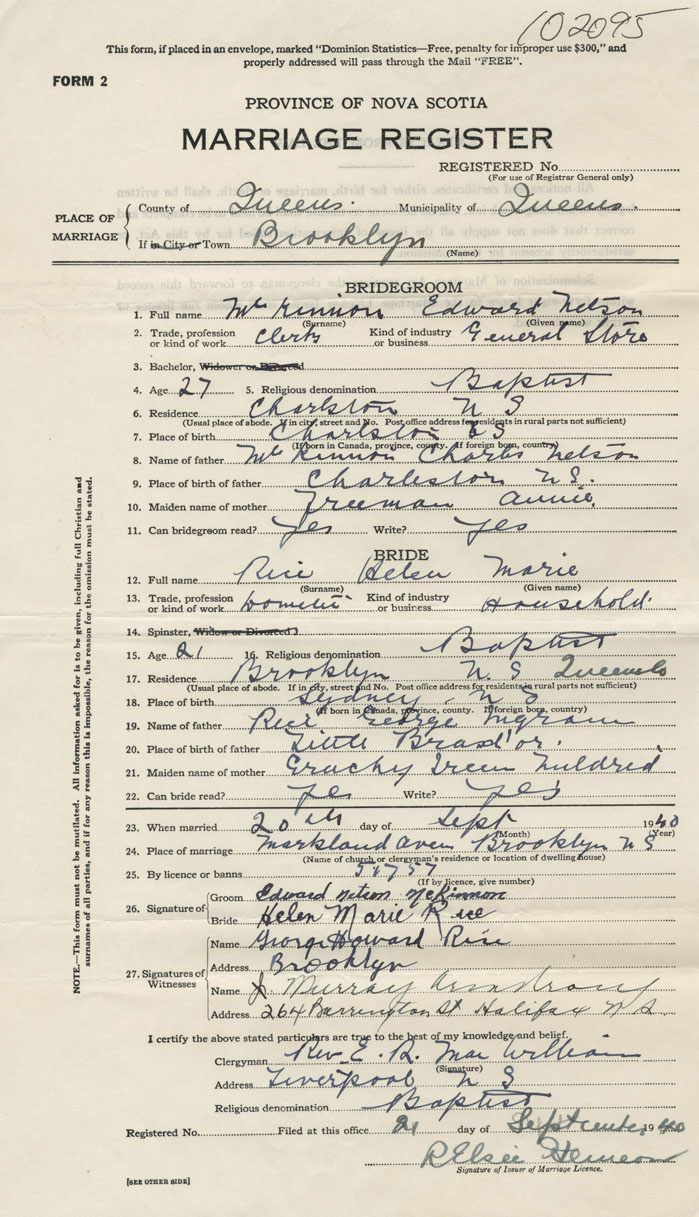 102095
This form, if placed in an envelope, marked "Dominion Statistics—Free, penalty for improper use $300," and
properly addressed will pass through the Mail "FREE".
FORM 2
PROVINCE OF NOVA SCOTIA
MARRIAGE REGISTER
REGISTERED No.
(For use of Registrar General only)
PLACE OF MARRIAGE
County of Queens. Municipality of Queens.
If in City or Town Brooklyn
(Name)
BRIDEGROOM
1. Full name McKinnon Edward Nelson
(Surname) (Given name)
2. Trade, profession or kind of work Clerk Kind of industry or business General Store
3. Bachelor, Widower or Divorced
4. Age 27 5. Religious denomination Baptist
6. Residence Charlston N S
(Usual place of abode. If in city, street and No. Post office address for residents in rural parts not sufficient)
7. Place of birth Charlston N S
(If born in Canada, province, county. If foreign born, country)
8. Name of father McKinnon Charles Nelson
9. Place of birth of father Charleston N.S.
10. Maiden name of mother Freeman Annie.
11. Can bridegroom read? Yes Write? Yes
BRIDE
12. Full name Rice Helen Marie
(Surname) (Given name)
13. Trade, profession or kind of work Kind of industry or business Household.
14. Spinster, Widow or Divorced
15. Age 21 16. Religious denomination Baptist
17. Residence Brooklyn N. S Queens Co
(Usual place of abode. If in city, street and No. Post office address for residents in rural parts not sufficient)
18. Place of birth Sydney N S
(If born in Canada, province, county. If foreign born, country)
19. Name of father Rice George Ingram
20. Place of birth of father Little Bras d'or.
21. Maiden name of mother Irene Mildred
22. Can bride read? Yes Write? Yes
23. When married 20th day of Sept 1940
(Month) (Year)
24. Place of marriage Markland Aven Brooklyn N S
(Name of church or clergyman's residence or location of dwelling house)
25. By licence or banns
(If by licence, give number)
26. Signature of
Groom Edward Nelson McKinnon
Bride Helen Marie Rice
27. Signatures of Witnesses
Name George Howard Rice
Address Brooklyn
Name J. Murray Armstrong
Address 264 Barrington St Halifax N S.
I certify the above stated particulars are true to the best of my knowledge and belief.
Clergyman Rev. E. R. MacWilliam
(Signature)
Address Liverpool N S
Religious denomination Baptist
Registered No. Filed at this office 21 day of September 1940
R Elsie
Signature of Issuer of Marriage Licence.
[SEE OTHER SIDE]
NOTE.—This form must not be mutilated. All information asked for is to be given, including full Christian and
surnames of all parties, and if for any reason this is impossible, the reason for the omission must be stated.